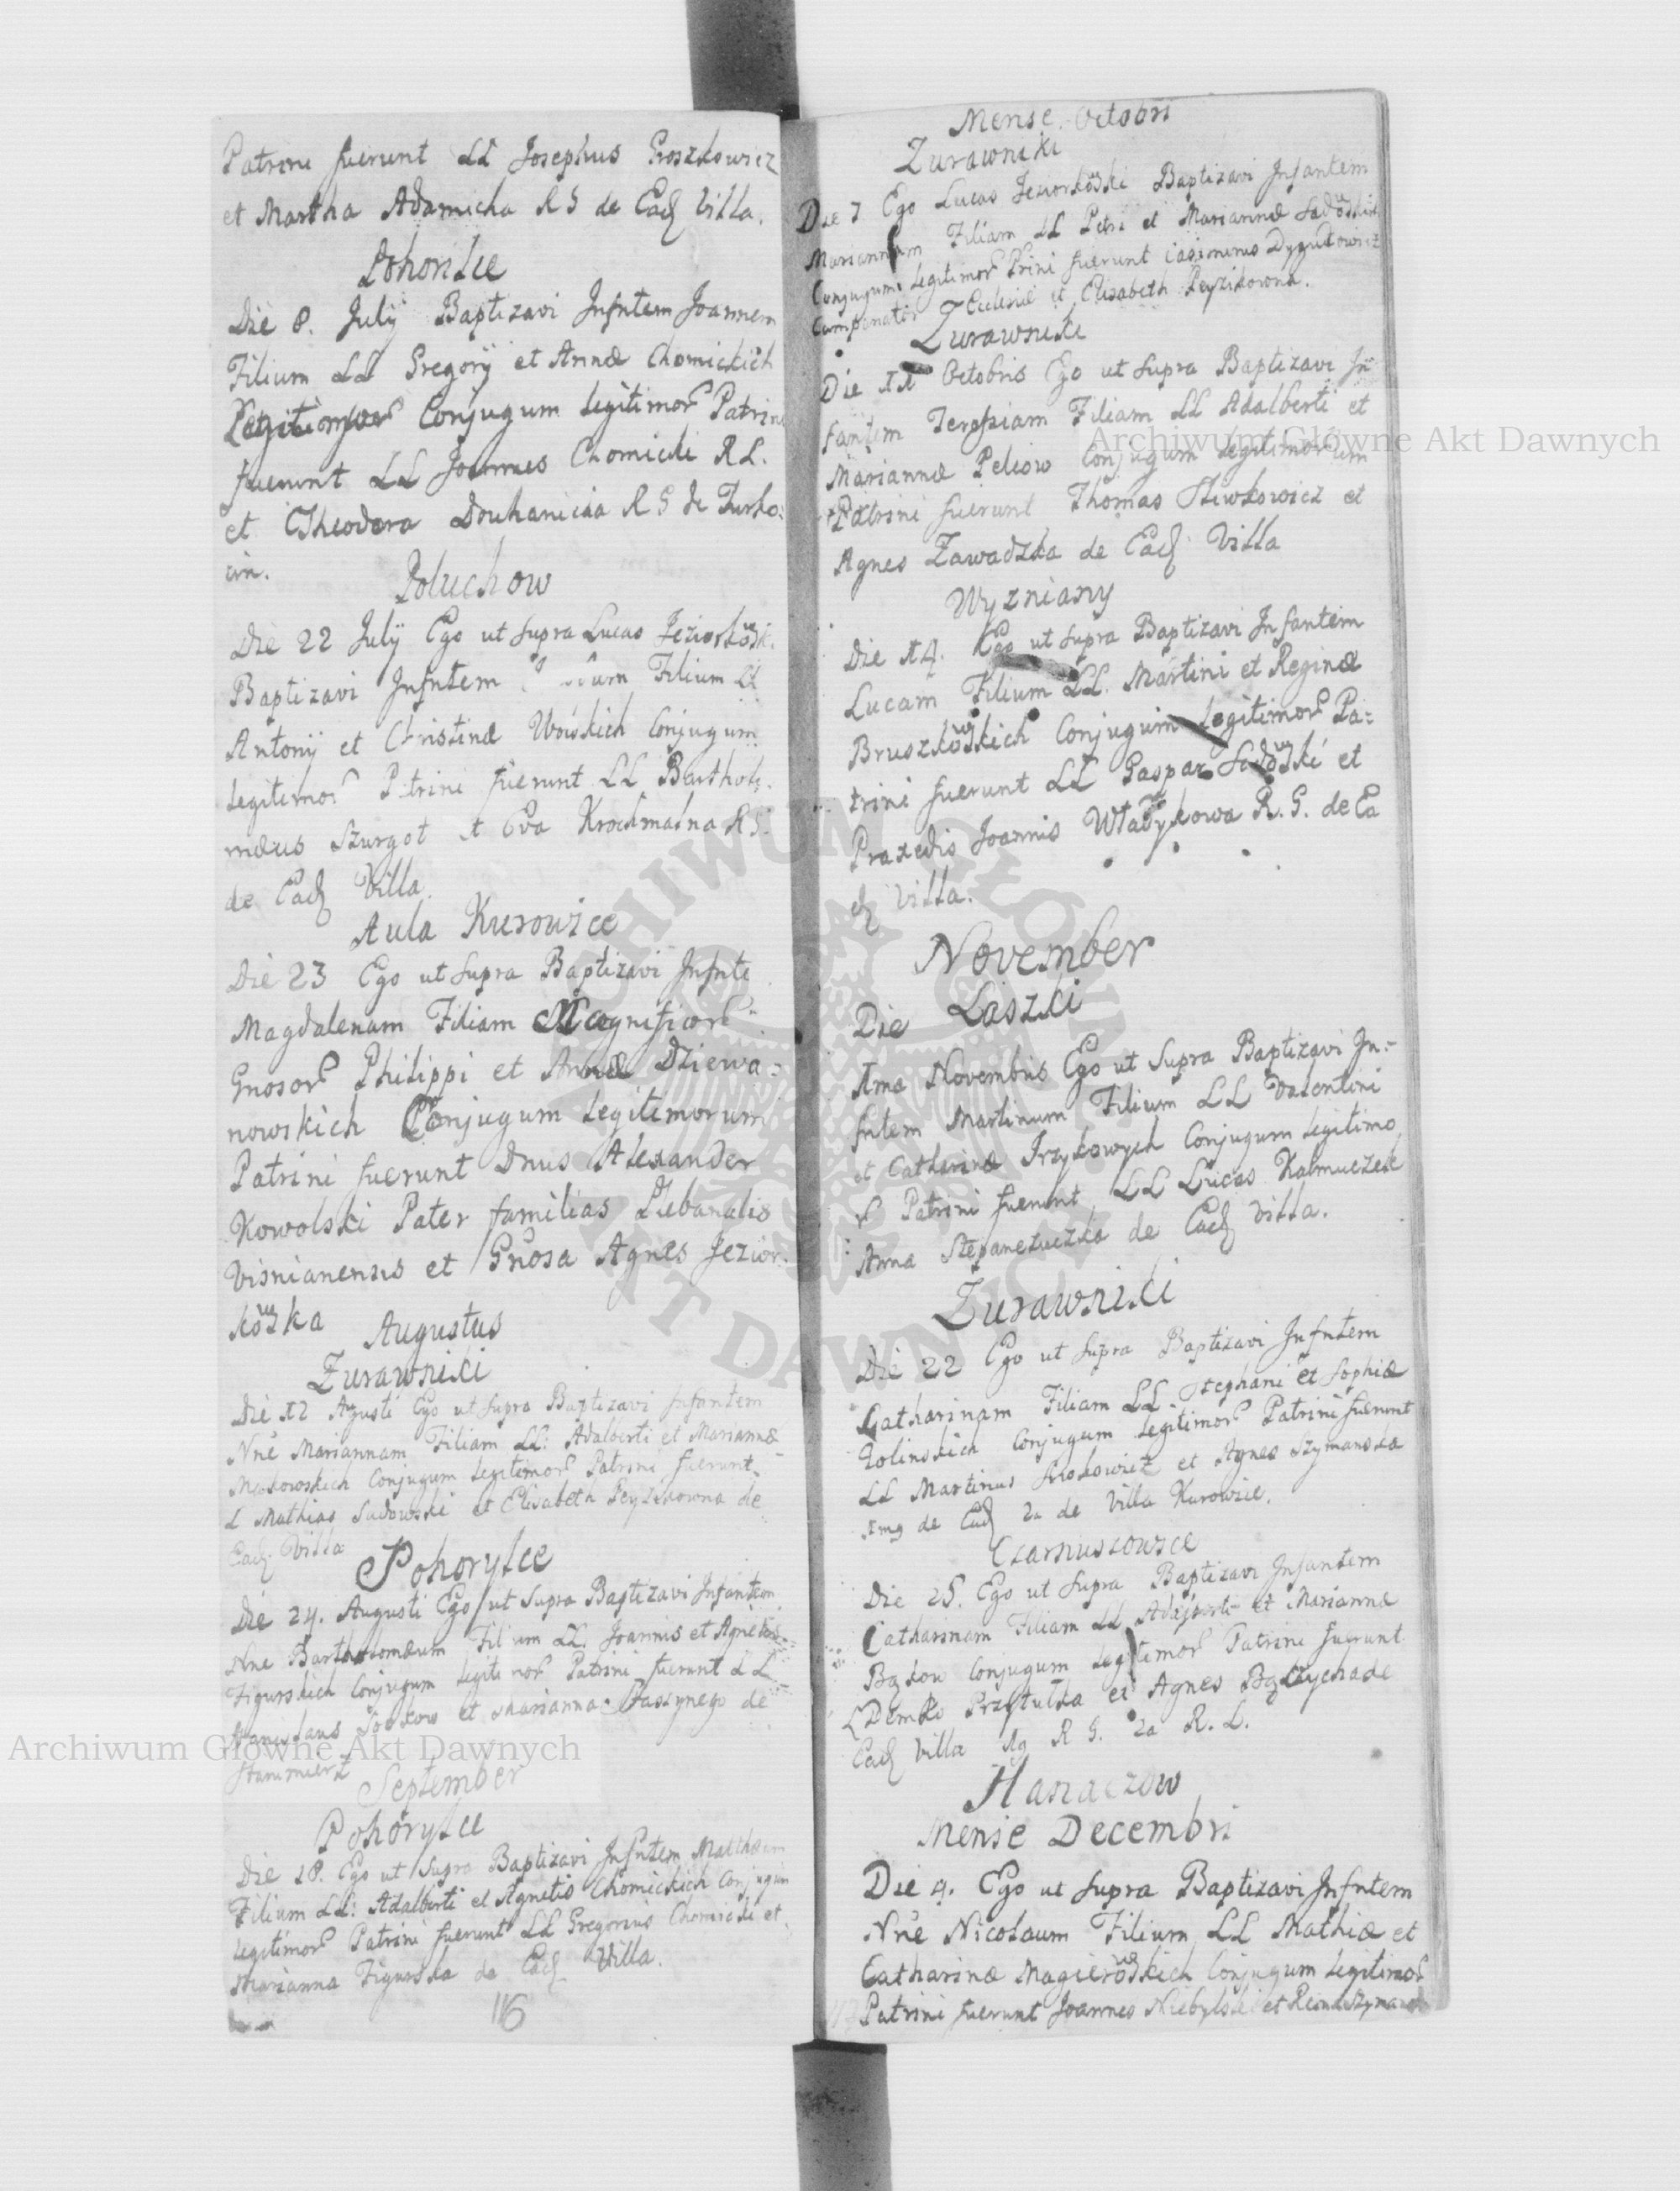 Patrini fuerunt LL Josephus Groszkowicz
et Martha Adamicha R G de Eadē Villa.
Pohorilce
Die 8. Julÿ Baptizavi Infntem Joannem
Filium LL Gregorÿ et Annæ Chomickich
Conjugum legitimor Patrini
fuerunt LL Joannes Chomicki R L.
et Theodora Druhanicka R G de Turko:
cin.
Poluchow
Die 22 Julÿ Ego ut supra Lucas Jeziorkowsk.
Baptizavi Infntem Filium LL
Antonÿ et Christinæ Woyskich Conjugum
legitimor Patrini fuerunt LL Bartholo.
mæus Szurgot et Eva Krochmalna R G.
de Eadē Villa.
Aula Kurowice
Die 23 Ego ut supra Baptizavi Infnte
Magdalenam Filiam Magnificor
Gnosor Philippi et Annæ Dziewa:
nowskich Conjugum legitimorum
Patrini fuerunt Dnus Alexander
Kowolski Pater familias Plebanalis
Visnianensis et Gnosa Agnes Jezior.
kowska
Augustus
Zurawniki
Die 12 Augusti Ego ut supra Baptizavi Infantem
Nnē Mariannam Filiam LL: Adalberti et Mariannæ
Conjugum legitimor Patrini fuerunt
L Mathias Sadowski et Elisabeth Peyzikowna de
Eadē Villa
Pohorylce
Die 24. Augusti Ego ut supra Baptizavi Infantem
Nne Bartholomæum Filium LL. Joannis et Agnetis
Figurskich Conjugum legitimor Patrini fuerunt LL
Stanislaus et Marianna de
September
Pohorylce
Die 18. Ego ut supra Baptizavi Infntem Matthæum
Filium LL: Adalberti et Agnetis Chomickich Conjugum
legitimor Patrini fuerunt LL Gregorius Chomicki et
Marianna Figurska de Eadē Villa.
116
Mense Octobri
Zurawniki
Die 7 Ego Lucas Jeziorkowski Baptizavi Infantem
Mariannam Filiam LL Petri et Mariannæ Sadowskich
Conjugum legitimor Prini fuerunt Casimirus Dygudowicz
Campanator Ecclesiæ et Elisabeth Peyzikowna.
Zurawniki
Die 11 Octobris Ego ut supra Baptizavi In
fantem Teressiam Filiam LL Adalberti et
Mariannæ Pelcow Conjugum legitimorum
Patrini fuerunt Thomas Sliwkowicz et
Agnes Zawadzka de Eadē Villa
Wyzniany
Die 14. Ego ut supra Baptizavi Infantem
Lucam Filium LL. Martini et Reginæ
Bruszkowskich Conjugum legitimor Pa:
trini fuerunt LL Gaspar Sadowski et
Praxedis Joannis Władykowa R. G. de Ea
dē Villa.
November
Laszki
Die
1ma Novembris Ego ut supra Baptizavi In:
fntem Martinum Filium LL Valentini
et Catharinæ Irzykowych Conjugum legitimo
r Patrini fuerunt LL Lucas Kalmuczek
Anna de Eadē Villa.
Zurawniki
Die 22 Ego ut supra Baptizavi Infntem
Catharinam Filiam LL Stephani et Sophiæ
Zolinskich Conjugum legitimor Patrini fuerunt
LL Martinus et Agnes Szymanska
1mg de Eadē 2a de Villa Kurowice.
Czarnuszowice
Die 25. Ego ut supra Baptizavi Infantem
Catharinam Filiam LL Adalberti et Mariannæ
Bąkow Conjugum legitimor Patrini fuerunt
L Demko Przystulka et Agnes de
Eadē Villa 1g R G. 2a R. L.
Hanaczow
Mense Decembri
Die 4. Ego ut supra Baptizavi Infntem
Nne Nicolaum Filium LL Mathiæ et
Catharinæ Magierowskich Conjugum legitimor
Patrini fuerunt Joannes Niebylski et
Archiwum Główne Akt Dawnych
Archiwum Główne Akt Dawnych
ARCHIWUM GŁÓWNE AKT DAWNYCH